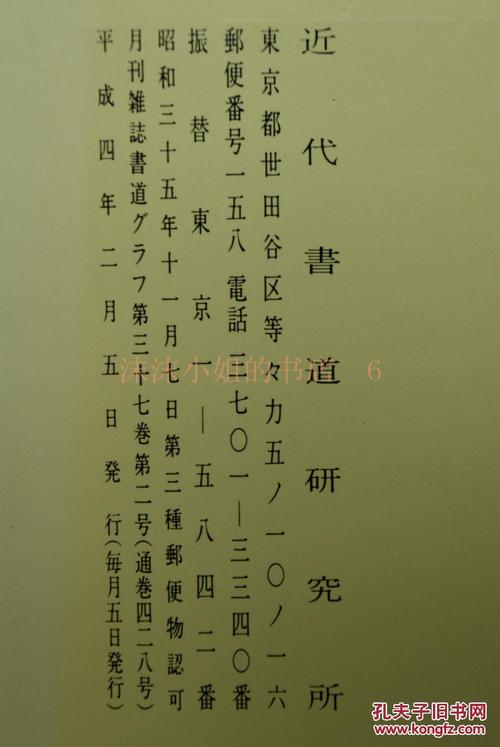 近代書道研究所
東京都世田谷区等々力五ノ一〇ノ一六
郵便番号一五八 電話三七〇一―三三四〇番
振替東京一―五八四二番
昭和三十五年十一月七日第三種郵便物認可
月刊雑誌書道グラフ第三十七巻第二号(通巻四二八号)
平成四年二月五日発行(毎月五日発行)
沫沫小姐的书道 6
孔夫子旧书网
www.kongfz.com